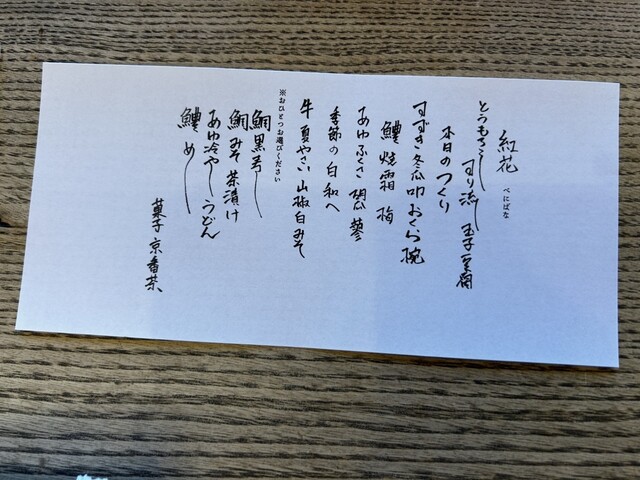 紅花 べにばな
とうもろこし すり流し 玉子豆腐
本日のつくり
すずき 冬瓜 叩おくら 椀
鱧 焼霜 梅
あゆふくさ 胡瓜 蓼
季節の白和へ
牛 夏やさい 山椒白みそ
※おひとつお選びください
鯛黒寿し
鯛みそ茶漬け
あゆ冷やしうどん
鱧めし
菓子 京番茶